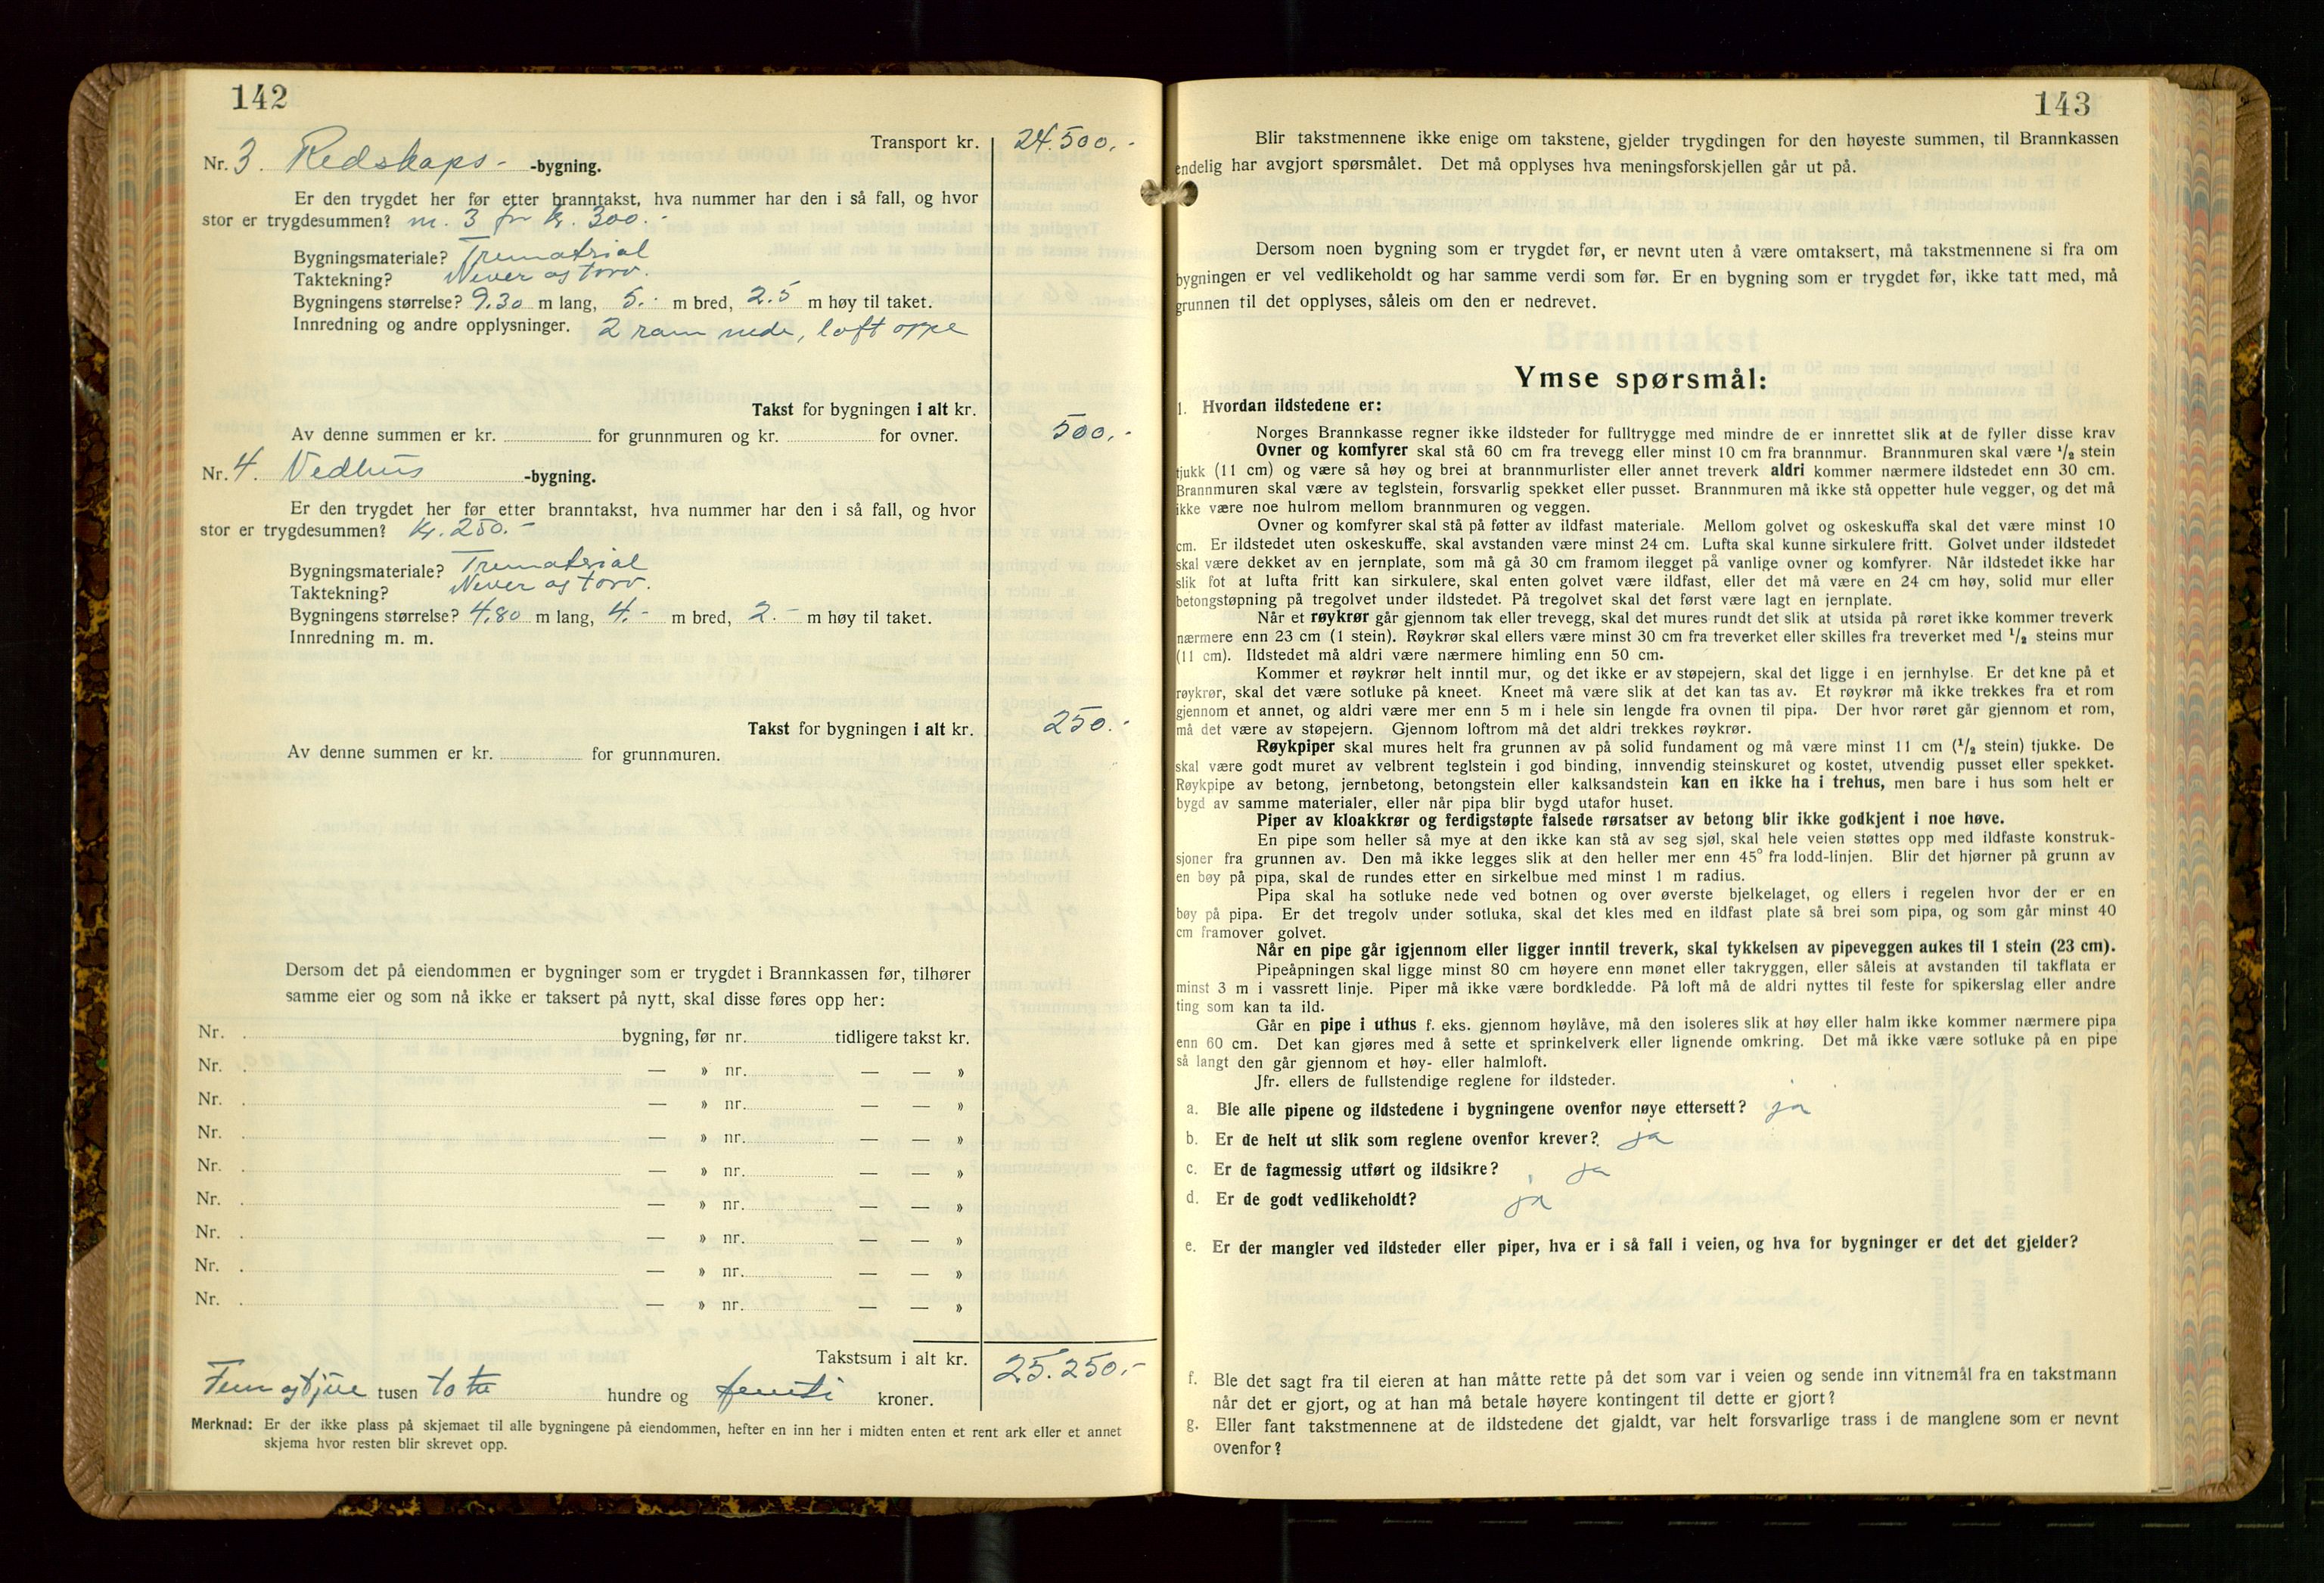 142
Transport kr. 24.500.-
Nr. 3. Redskaps- -bygning.
Er den trygdet her før etter branntakst, hva nummer har den i så fall, og hvor
stor er trygdesummen? nr. 3 for kr. 300.-
Bygningsmateriale? Trematerial
Taktekning? Never og torv.
Bygningens størrelse? 9.30 m lang, 5.- m bred, 2.5 m høy til taket.
Innredning og andre opplysninger. 2 rom nede, loft oppe
Takst for bygningen i alt kr.
Av denne summen er kr. for grunnmuren og kr. for ovner. 500.-
Nr. 4. Vedhus -bygning.
Er den trygdet her før etter branntakst, hva nummer har den i så fall, og hvor
stor er trygdesummen? Kr. 250.-
Bygningsmateriale? Tremateriał
Taktekning? Never og torv.
Bygningens størrelse? 4.80 m lang, 4.- m bred, 2.- m høy til taket.
Innredning m. m.
Takst for bygningen i alt kr. 250.-
Av denne summen er kr. for grunnmuren.
Dersom det på eiendommen er bygninger som er trygdet i Brannkassen før, tilhører
samme eier og som nå ikke er taksert på nytt, skal disse føres opp her:
Nr. bygning, før nr. tidligere takst kr.
Nr. — » nr. — — »
Nr. — » nr. — — »
Nr. — » nr. — — »
Nr. — » nr. — — »
Nr. — » nr. — — »
Nr. — » nr. — — »
Nr. — » nr. — — »
Nr. — » nr. — — »
Takstsum i alt kr. 25.250.-
Fem og tjue tusen to hundre og femti kroner.
Merknad: Er der ikke plass på skjemaet til alle bygningene på eiendommen, hefter en inn her i midten enten et rent ark eller et annet
skjema hvor resten blir skrevet opp.
143
Blir takstmennene ikke enige om takstene, gjelder trygdingen for den høyeste summen, til Brannkassen
endelig har avgjort spørsmålet. Det må opplyses hva meningsforskjellen går ut på.
Dersom noen bygning som er trygdet før, er nevnt uten å være omtaksert, må takstmennene si fra om
bygningen er vel vedlikeholdt og har samme verdi som før. Er en bygning som er trygdet før, ikke tatt med, må
grunnen til det opplyses, såleis om den er nedrevet.
Ymse spørsmål:
1. Hvordan ildstedene er:
Norges Brannkasse regner ikke ildsteder for fulltrygge med mindre de er innrettet slik at de fyller disse krav
Ovner og komfyrer skal stå 60 cm fra trevegg eller minst 10 cm fra brannmur. Brannmuren skal være ½ stein
tjukk (11 cm) og være så høy og brei at brannmurlister eller annet treverk aldri kommer nærmere ildstedet enn 30 cm.
Brannmuren skal være av teglstein, forsvarlig spekket eller pusset. Brannmuren må ikke stå oppetter hule vegger, og det må
ikke være noe hulrom mellom brannmuren og veggen.
Ovner og komfyrer skal stå på føtter av ildfast materiale. Mellom golvet og oskeskuffa skal det være minst 10
cm. Er ildstedet uten oskeskuffe, skal avstanden være minst 24 cm. Lufta skal kunne sirkulere fritt. Golvet under ildstedet
skal være dekket av en jernplate, som må gå 30 cm framom ilegget på vanlige ovner og komfyrer. Når ildstedet ikke har
slik fot at lufta fritt kan sirkulere, skal enten golvet være ildfast, eller det må være en 24 cm høy, solid mur eller
betongstøpning på tregolvet under ildstedet. På tregolvet skal det først være lagt en jernplate.
Når et røykrør går gjennom tak eller trevegg, skal det mures rundt det slik at utsida på røret ikke kommer treverk
nærmere enn 23 cm (1 stein). Røykrør skal ellers være minst 30 cm fra treverket eller skilles fra treverket med ½ steins mur
(11 cm). Ildstedet må aldri være nærmere himling enn 50 cm.
Kommer et røykrør helt inntil mur, og det ikke er av støpejern, skal det ligge i en jernhylse. Er det kne på et
røykrør, skal det være sotluke på kneet. Kneet må være slik at det kan tas av. Et røykrør må ikke trekkes fra et rom
gjennom et annet, og aldri være mer enn 5 m i hele sin lengde fra ovnen til pipa. Der hvor røret går gjennom et rom,
må det være av støpejern. Gjennom loftrom må det aldri trekkes røykrør.
Røykpiper skal mures helt fra grunnen av på solid fundament og må være minst 11 cm (½ stein) tjukke. De
skal være godt muret av velbrent teglstein i god binding, innvendig steinskuret og kostet, utvendig pusset eller spekket.
Røykpipe av betong, jernbetong, betongstein eller kalksandstein kan en ikke ha i trehus, men bare i hus som helt er
bygd av samme materialer, eller når pipa blir bygd utafor huset.
Piper av kloakkrør og ferdigstøpte falsede rørsatser av betong blir ikke godkjent i noe høve.
En pipe som heller så mye at den ikke kan stå av seg sjøl, skal hele veien støttes opp med ildfaste konstruk-
sjoner fra grunnen av. Den må ikke legges slik at den heller mer enn 45° fra lodd-linjen. Blir det hjørner på grunn av
en bøy på pipa, skal de rundes etter en sirkelbue med minst 1 m radius.
Pipa skal ha sotluke nede ved botnen og over øverste bjelkelaget, og ellers i regelen hvor der er en
bøy på pipa. Er det tregolv under sotluka, skal det kles med en ildfast plate så brei som pipa, og som går minst 40
cm framover golvet.
Når en pipe går igjennom eller ligger inntil treverk, skal tykkelsen av pipeveggen aukes til 1 stein (23 cm).
Pipeåpningen skal ligge minst 80 cm høyere enn mønet eller takryggen, eller såleis at avstanden til takflata er
minst 3 m i vassrett linje. Piper må ikke være bordkledde. På loft må de aldri nyttes til feste for spikerslag eller andre
ting som kan ta ild.
Går en pipe i uthus f. eks. gjennom høylåve, må den isoleres slik at høy eller halm ikke kommer nærmere pipa
enn 60 cm. Det kan gjøres med å sette et sprinkelverk eller lignende omkring. Det må ikke være sotluke på en pipe
så langt den går gjennom et høy- eller halmloft.
Jfr. ellers de fullstendige reglene for ildsteder.
a. Ble alle pipene og ildstedene i bygningene ovenfor nøye ettersett? ja
b. Er de helt ut slik som reglene ovenfor krever? ja
c. Er de fagmessig utført og ildsikre? ja
d. Er de godt vedlikeholdt? ja
e. Er der mangler ved ildsteder eller piper, hva er i så fall i veien, og hva for bygninger er det det gjelder?
f. Ble det sagt fra til eieren at han måtte rette på det som var i veien og sende inn vitnemål fra en takstmann
når det er gjort, og at han må betale høyere kontingent til dette er gjort?
g. Eller fant takstmennene at de ildstedene det gjaldt, var helt forsvarlige trass i de manglene som er nevnt
ovenfor?